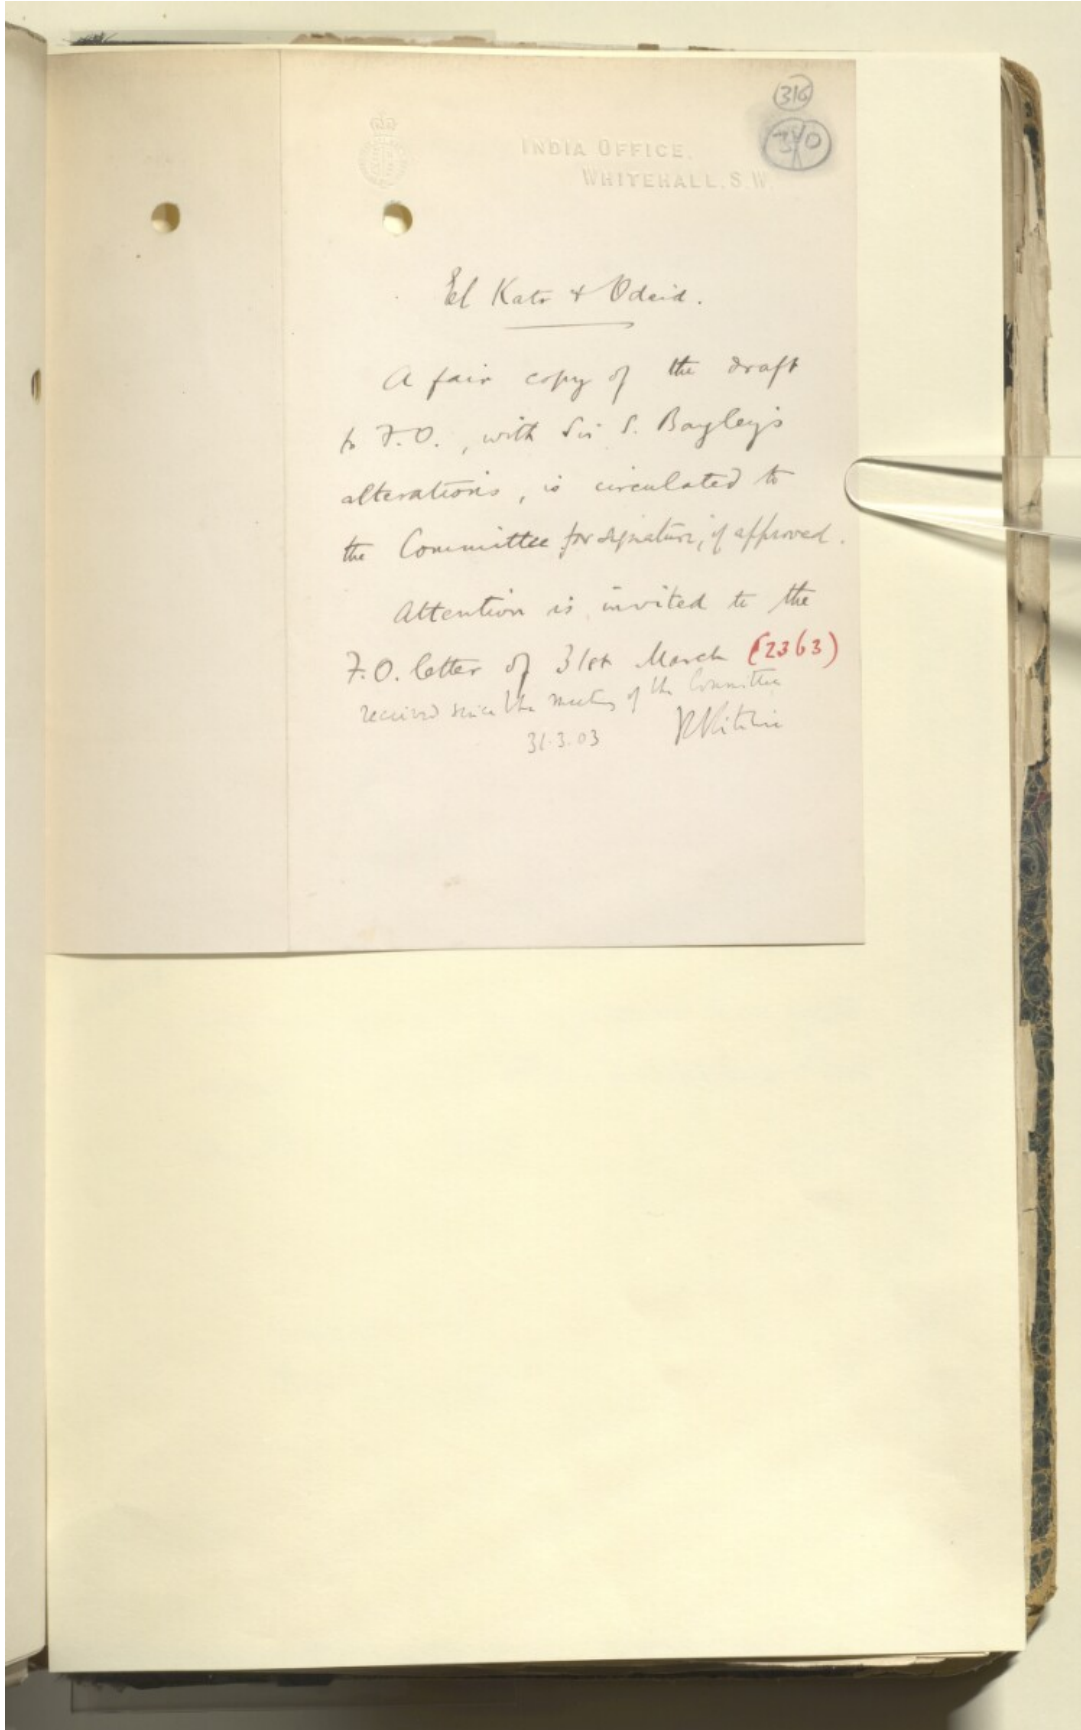 316
340
INDIA OFFICE,
WHITEHALL, S.W.
El Katr & Odeid.
A fair copy of the draft
to F.O., with Sir S. Bayley's
alterations, is circulated to
the Committee for signature, if approved.
Attention is invited to the
F.O. letter of 31st March (2363)
received since the meeting of the Committee
31.3.03 R Ritchie